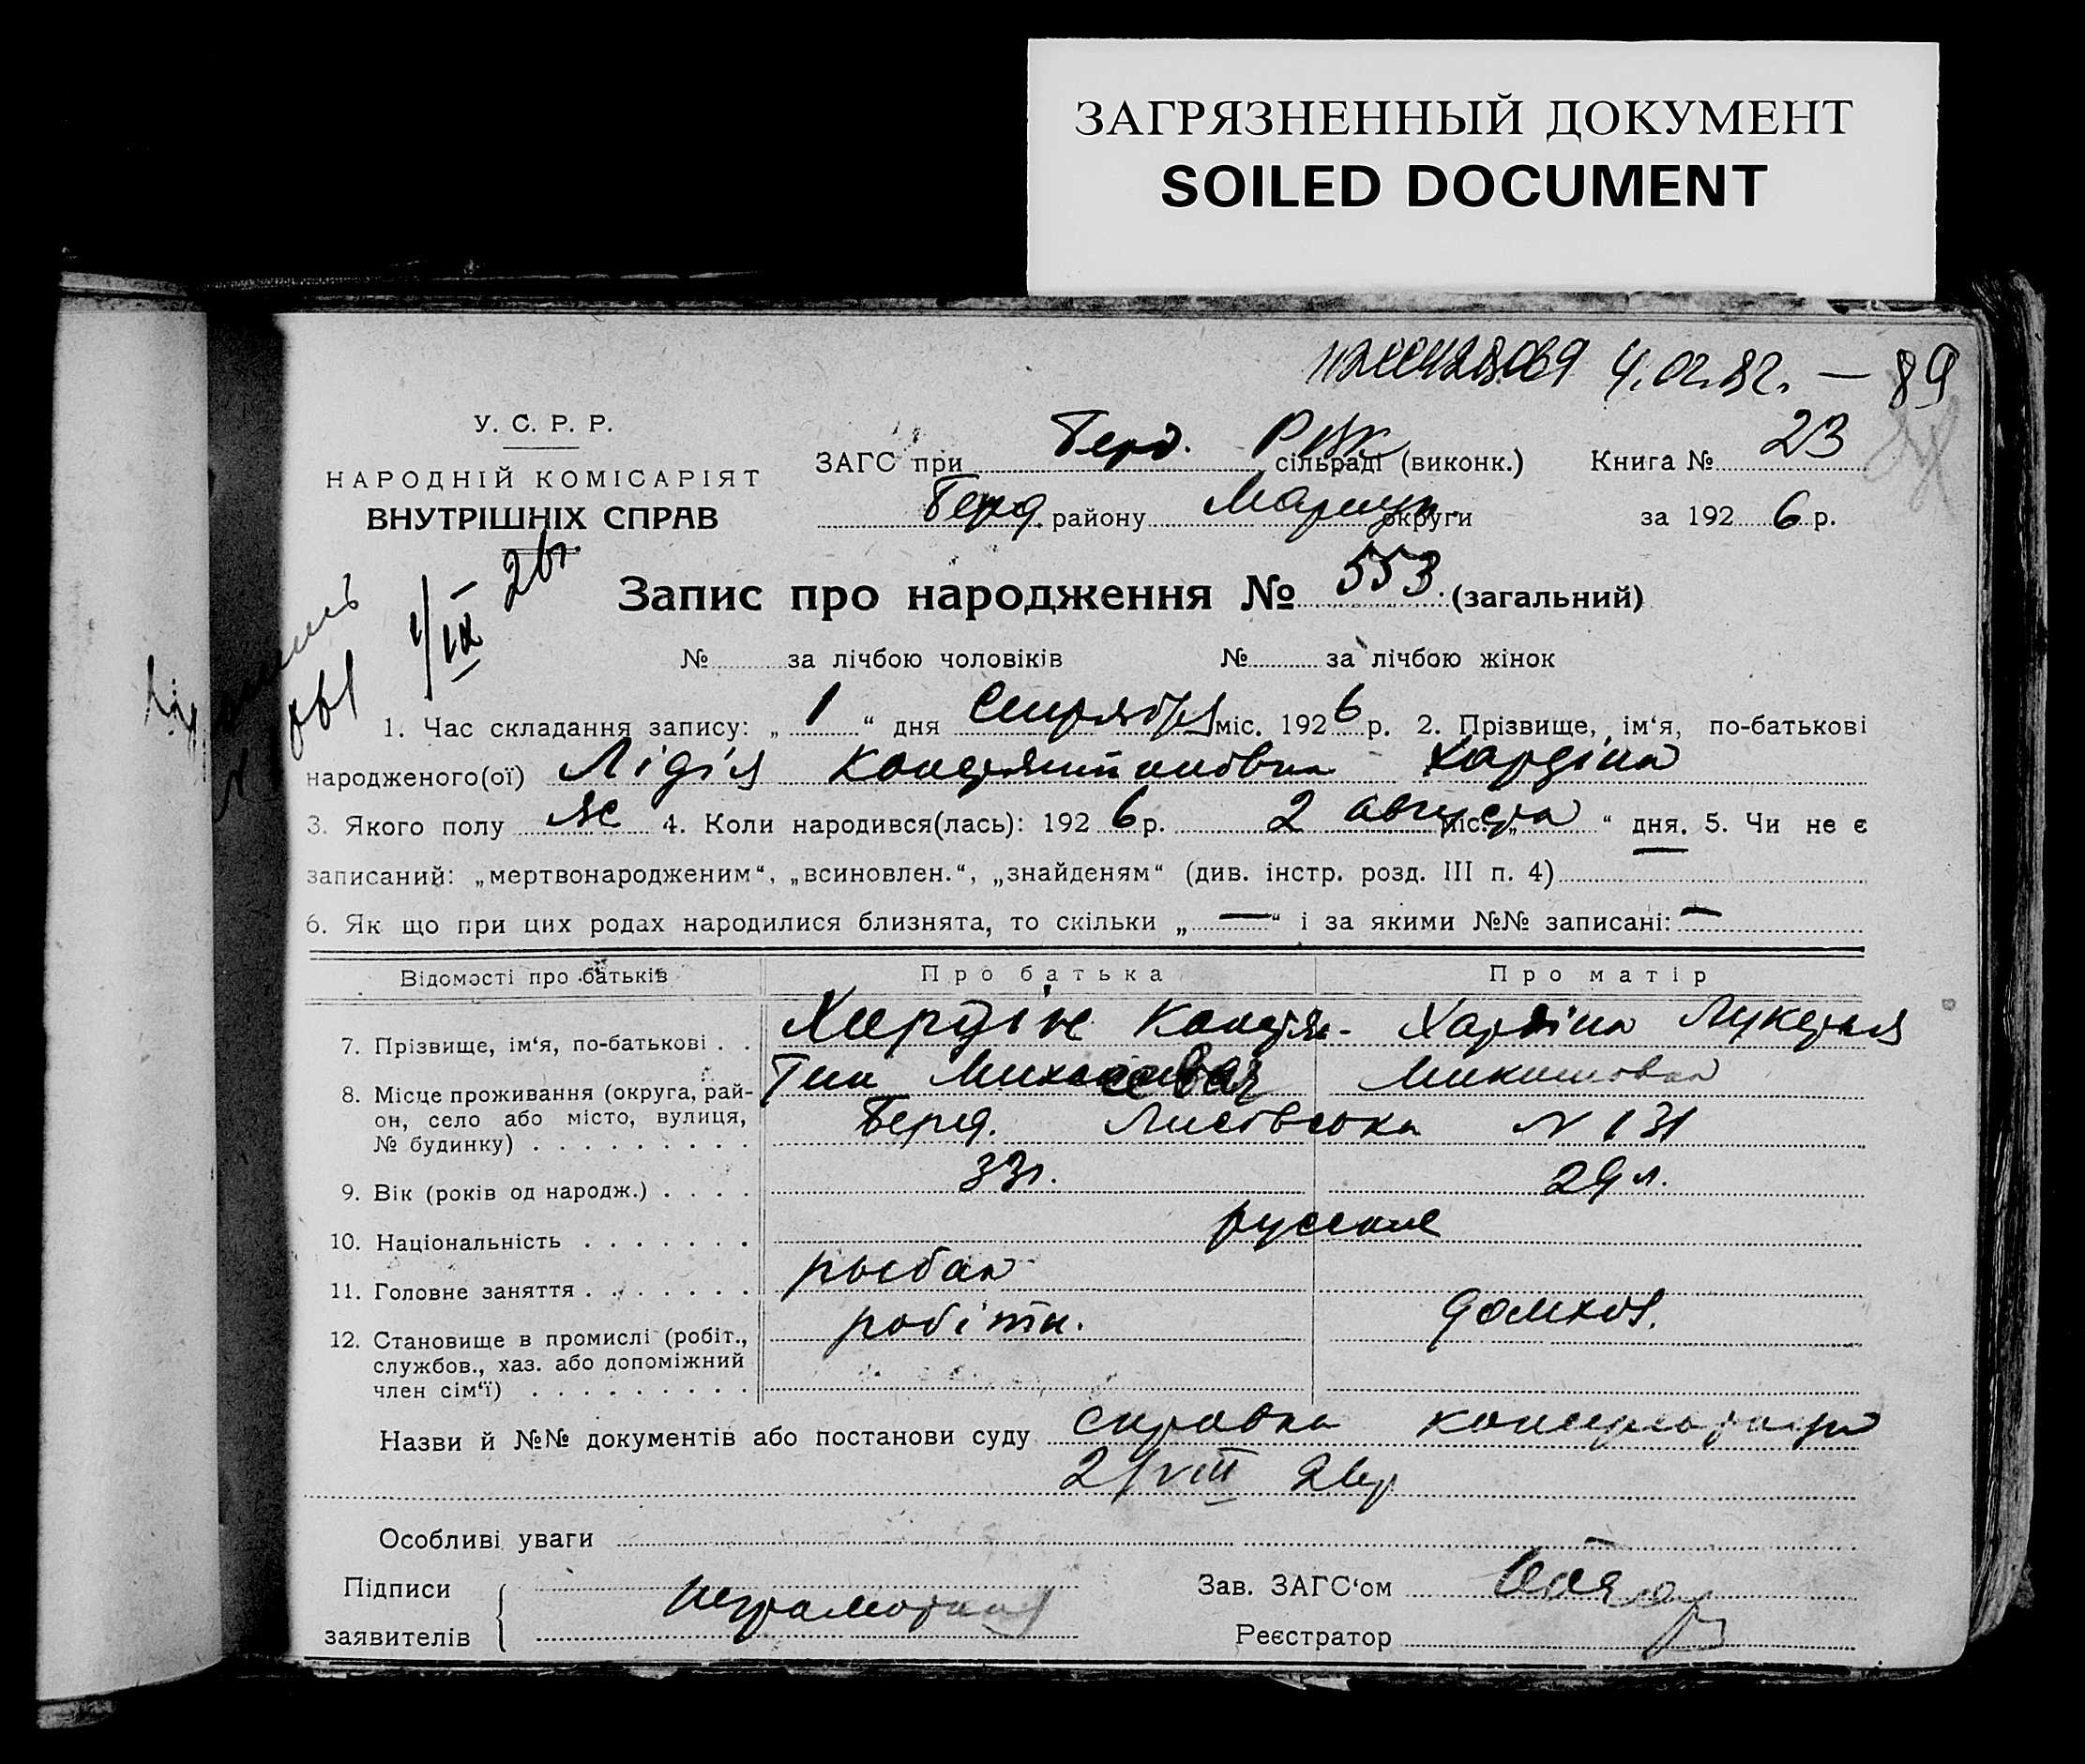 ЗАГРЯЗНЕННЫЙ ДОКУМЕНТ
SOILED DOCUMENT
4.02.82. — 89
У. С. Р. Р.
НАРОДНІЙ КОМІСАРІЯТ
ВНУТРІШНІХ СПРАВ
ЗАГС при Берд. РВК сільраді (виконк.) Книга № 23
Берд. району Мариуп. округи за 1926 р.
1/IX – 26г.
Запис про народження № 553 (загальний)
№ за лічбою чоловіків № за лічбою жінок
1. Час складання запису: „ 1 “ дня Сентября міс. 1926 р. 2. Прізвище, ім‘я, по-батькові
народженого(ої) Лідія Константиновна Хардіна
3. Якого полу ж 4. Коли народився(лась): 1926 р. 2 августа міс. „ “ дня. 5. Чи не є
записаний: „мертвонародженим“, „всиновлен.“, „знайденям“ (див. інстр. розд. III п. 4)
6. Як що при цих родах народилися близнята, то скільки „ — “ і за якими №№ записані: —
Відомості про батьків Про батька Про матір
7. Прізвище, ім‘я, по-батькові . . Хардін Констан- Хардіна Лукерья
тин
8. Місце проживання (округа, рай-
он, село або місто, вулиця,
№ будинку) . . . . . . . . . Берд. № 131
9. Вік (років од народж.) . . . . 33г. 29 л.
10. Національність . . . . . . . русские
11. Головне заняття . . . . . . . рыбак
12. Становище в промислі (робіт.,
службов., хаз. або допоміжний
член сім‘ї) . . . . . . . . . робітн. домхоз.
Назви й №№ документів або постанови суду справка консультации
2/VIII 26г
Особливі уваги
Підписи
заявителів неграмотная
Зав. ЗАГС‘ом
Реєстратор